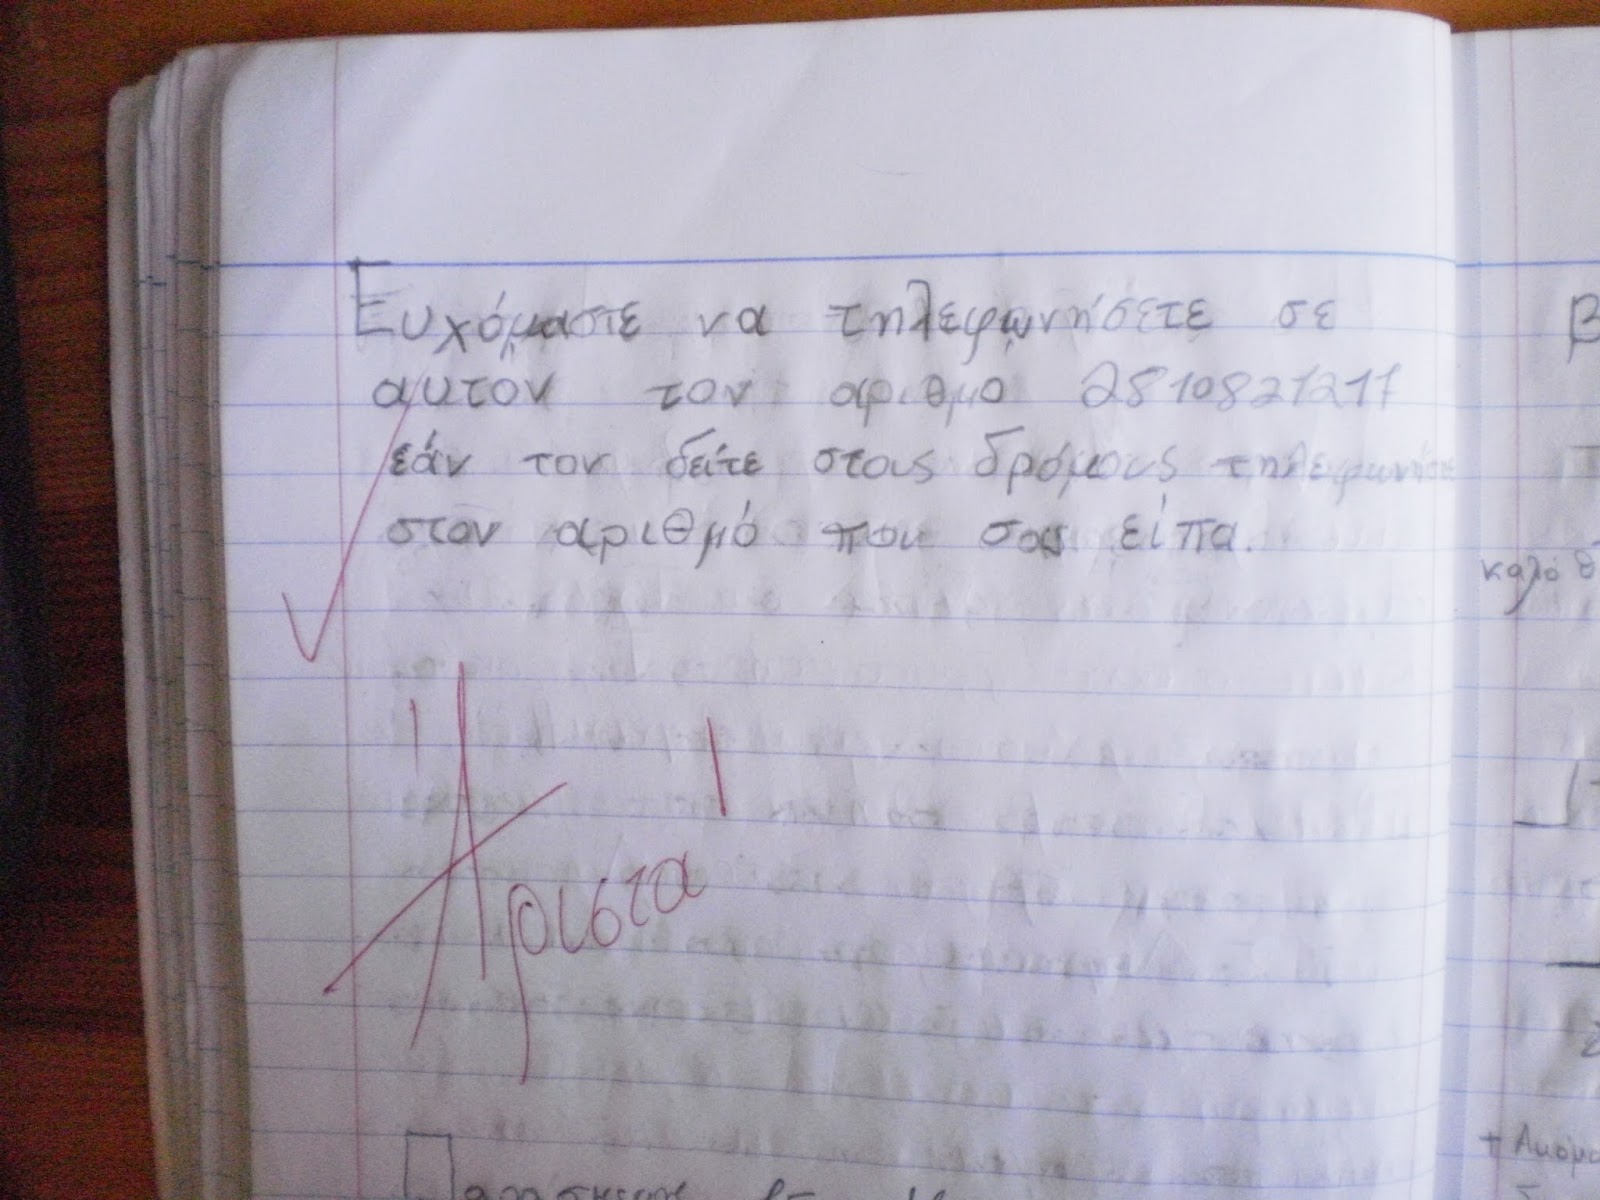 Ευχόμαστε να τηλεφωνήσετε σε
αυτον τον αριθμο 2810821217
εάν τον δείτε στους δρόμους τηλεφωνήστε
στον αριθμό που σας είπα.
Άριστα!
καλό
+ Ακόμα